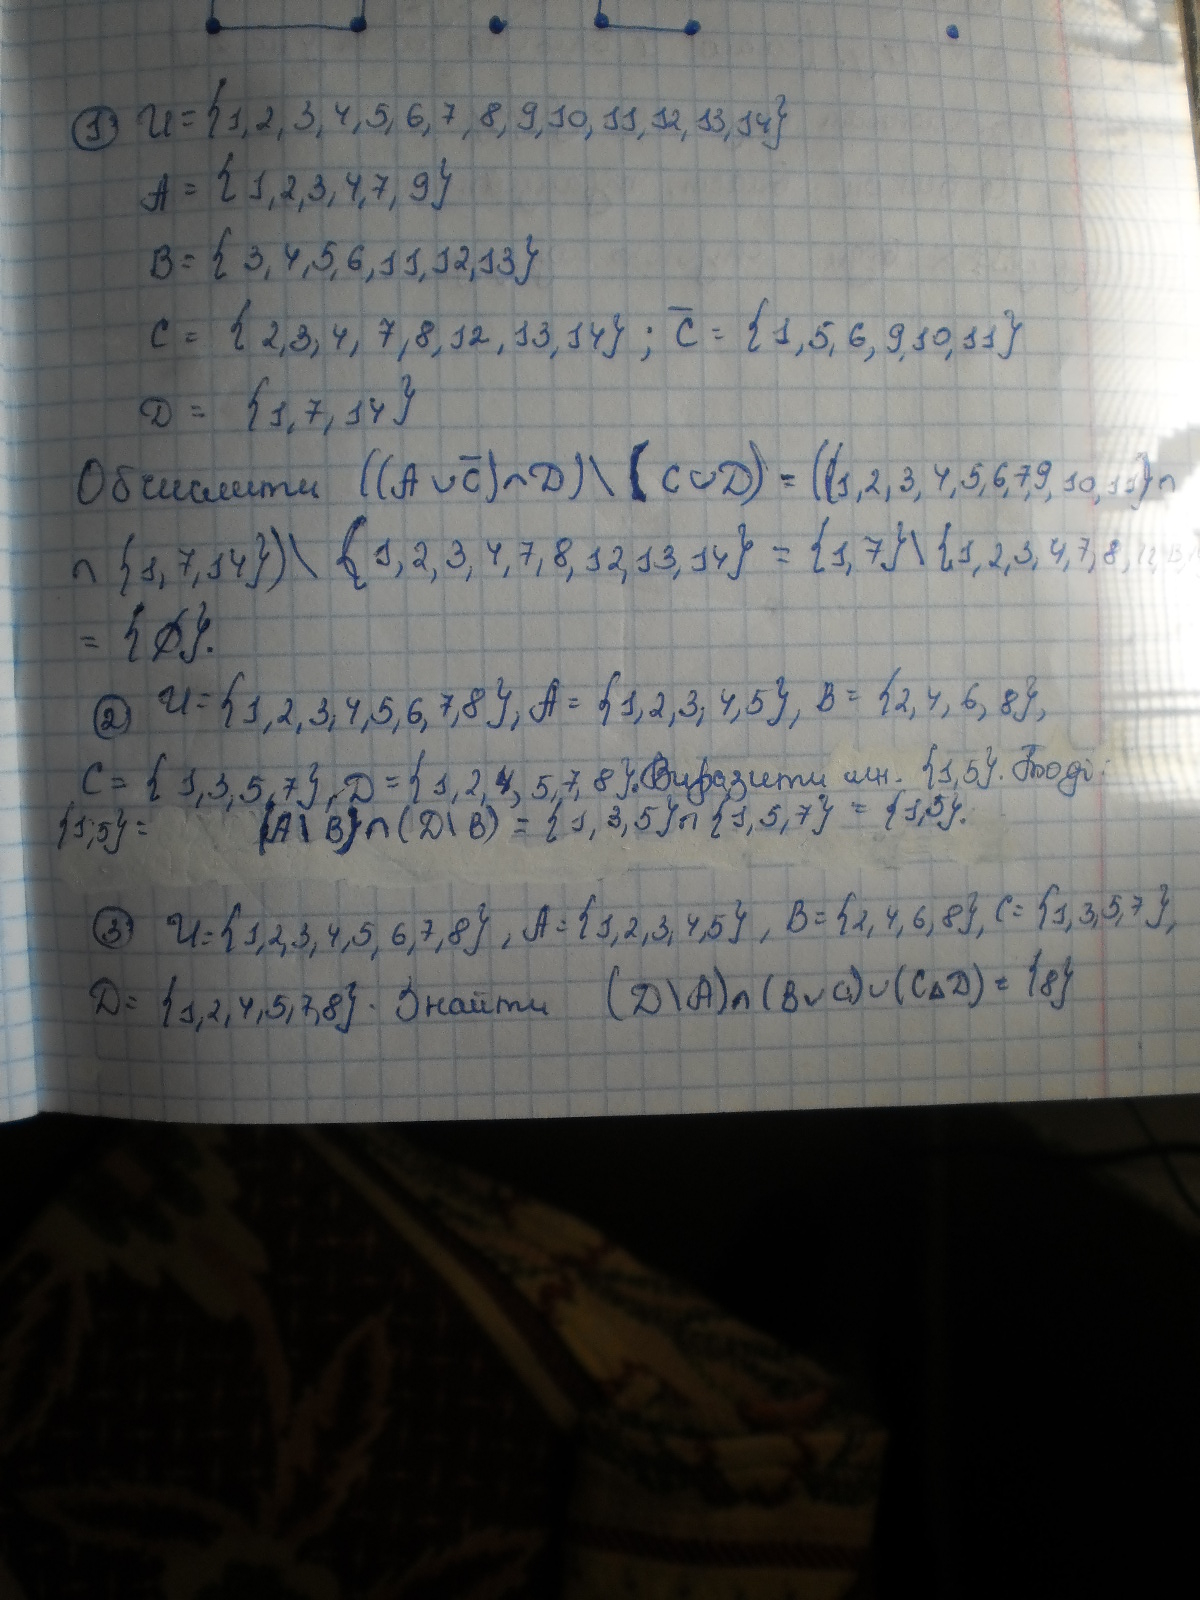 ① U = {1, 2, 3, 4, 5, 6, 7, 8, 9, 10, 11, 12, 13, 14}
A = {1, 2, 3, 4, 7, 9}
B = {3, 4, 5, 6, 11, 12, 13}
C = {2, 3, 4, 7, 8, 12, 13, 14}; C̅ = {1, 5, 6, 9, 10, 11}
D = {1, 7, 14}
Обчислити ((A ∪ C̅) ∩ D) \ (C ∪ D) = (({1, 2, 3, 4, 5, 6, 7, 9, 10, 11} ∩
∩ {1, 7, 14}) \ {1, 2, 3, 4, 7, 8, 12, 13, 14} = {1, 7} \ {1, 2, 3, 4, 7, 8, 12, 13,
= {∅}.
② U = {1, 2, 3, 4, 5, 6, 7, 8}, A = {1, 2, 3, 4, 5}, B = {2, 4, 6, 8},
C = {1, 3, 5, 7}, D = {1, 2, 4, 5, 7, 8}. Виразити мн. {1, 5}. Тоді:
{1; 5} = (A \ B) ∩ (D \ B) = {1, 3, 5} ∩ {1, 5, 7} = {1, 5}.
③ U = {1, 2, 3, 4, 5, 6, 7, 8}, A = {1, 2, 3, 4, 5}, B = {2, 4, 6, 8}, C = {1, 3, 5, 7},
D = {1, 2, 4, 5, 7, 8}. Знайти (D \ A) ∩ (B ∪ C) ∪ (C △ D) = {8}